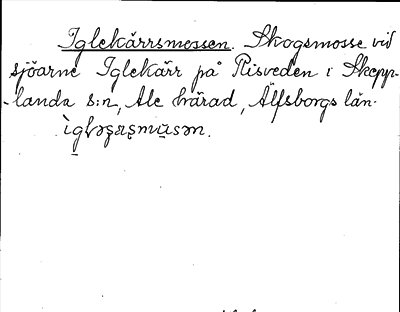 Iglekärrsmossen. Skogsmosse vid
sjöarne Iglekärr på Risveden i Skepp-
-landa s:n, Ale härad, Älfsborgs län.